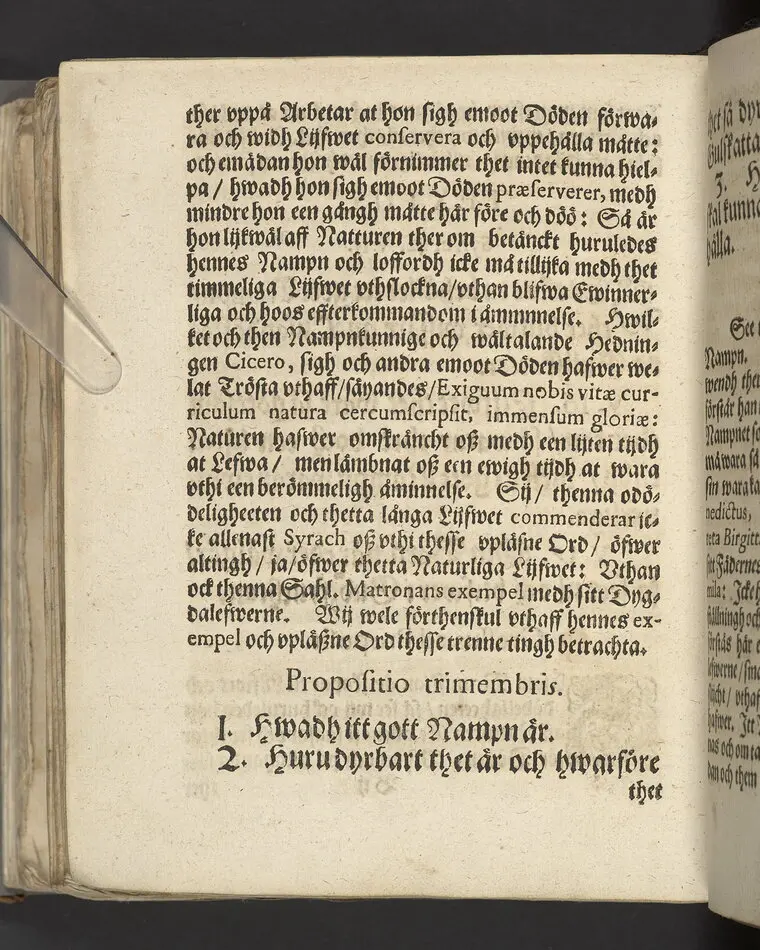 ther vppå Arbetar at hon sigh emoot Döden förwa-
ra och widh Lijfwet conservera och vppehålla måtte:
och emädan hon wäl förnimmer thet intet kunna hiel-
pa / hwadh hon sigh emoot Döden præserverer, medh
mindre hon een gångh måtte här före och döö: Så är
hon lijkwäl aff Natturen ther om betänckt huruledes
hennes Nampn och loffordh icke må tillijka medh thet
timmeliga Lijfwet vthslockna/vthan blifwa Ewinner-
liga och hoos effterkommandom i åmmnnelse. Hwil-
ket och then Nampnkunnige och wältalande Hednin-
gen Cicero, sigh och andra emoot Döden hafwer we-
lat Trösta vthaff/säyandes/Exiguum nobis vitæ cur-
riculum natura cercumscripsit, immensum gloriæ:
Naturen hafwer omskräncht oß medh een lijten tijdh
at Lefwa / men lämbnat oß een ewigh tijdh at wara
vthi een berömmeligh åminnelse. Sij/ thenna odö-
deligheeten och thetta långa Lijfwet commenderar ic-
ke allenast Syrach oß vthi thesse vpläsne Ord/ öfwer
altingh / ja/öfwer thetta Naturliga Lijfwet: Vthan
ock thenna Sahl. Matronans exempel medh sitt Dyg-
dalefwerne. Wij wele förthenskul vthaff hennes ex-
empel och vpläßne Ord thesse trenne tingh betrachta.
Propositio trimembris.
1. Hwadh itt gott Nampn är.
2. Huru dyrbart thet är och hwarföre
thet
het så dyr
Gulskatta
3. H
skal kunna
hålla.
See t
Nampn.
wendh the
förstår han
Nampnet so
må wara så
sin wara ka
nedictus,
eta Birgitt
sitt Fädernes
mila: Icke h
förstås här e
lefwerne/sm
hafwer. Itt
nas och om ta
dan och them